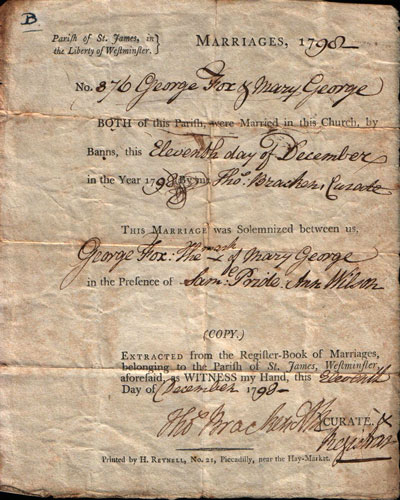 B
Parish of St. James, in
the Liberty of Westminster.
MARRIAGES, 1798
No. 876 George Fox & Mary George
BOTH of this Parish, were Married in this Church, by
Banns, this Eleventh day of December
in the Year 1798 By me Thos. Bracken, Curate
THIS MARRIAGE was Solemnized between us,
George Fox. The mark X of Mary George
in the Presence of Saml. Pride. Ann Wilson
(COPY.)
EXTRACTED from the Register-Book of Marriages,
belonging to the Parish of St. James, Westminster,
aforesaid, as WITNESS my Hand, this Eleventh
Day of December 1798
Thos Bracken CURATE, &
Registrar
Printed by H. REYNELL, No. 21, Piccadilly, near the Hay-Market.